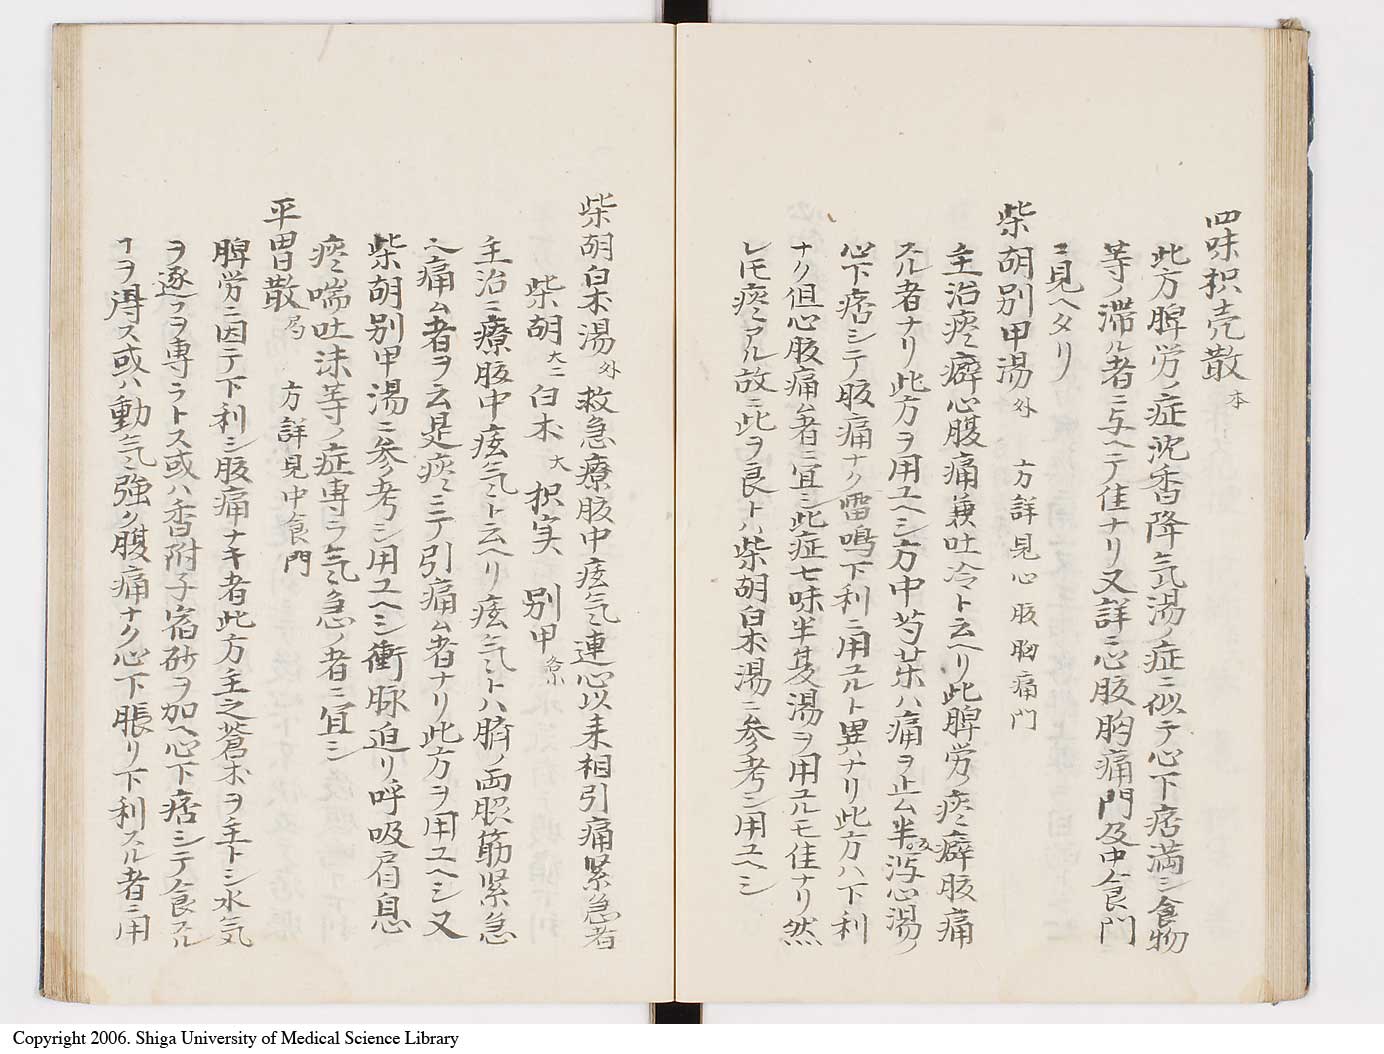 四味枳壳散 本
此方脾労ノ症沈香降气湯ノ症ニ似テ心下痞満シ食物
等ノ滞ル者ニ与ヘテ佳ナリ又詳ニ心胘胸痛門及中食門
ニ見ヘタリ
柴胡別甲湯 外 方詳見心胘胸痛門
主治痃癖心腹痛兼吐冷ト云ヘリ此脾労ノ痃癖胘痛
スル者ナリ此方ヲ用ユヘシ方中芍薬ハ痛ヲ止ム半夏泻心湯ノ
心下痞シテ胘痛ナク雷鳴下利ニ用ユルト異ナリ此方ハ下利
ナク但心胘痛ム者ニ宜シ此症七味半夏湯ヲ用ユルモ佳ナリ然
レ𪜈痃アル故ニ此ヲ良トハ柴胡白朮湯ニ参考シ用ユヘシ
柴胡白朮湯 外 救急療胘中痃气連心以来相引痛緊急者
柴胡 大二 白朮 大 枳実 別甲
主治ニ療胘中痃气ト云ヘリ痃气トハ臍ノ両服筋緊急
ヘ痛ム者ヲ云是痃ミテ引痛ム者ナリ此方ヲ用ユヘシ又
柴胡別甲湯ニ参考シ用ユヘシ衝脉迫リ呼吸肩息
痰喘吐沫等ノ症専ラ气急ノ者ニ宜シ
平胃散 局 方詳見中食門
脾労ニ因テ下利シ胘痛ナキ者此方主之蒼朮ヲ主トシ水気
ヲ逐フヲ専ラトス或ハ香附子宿砂ヲ加ヘ心下痞シテ食スル
ヿヲ得ス或ハ動气強ク腹痛ナク心下脹リ下利スル者ニ用
Copyright 2006. Shiga University of Medical Science Library